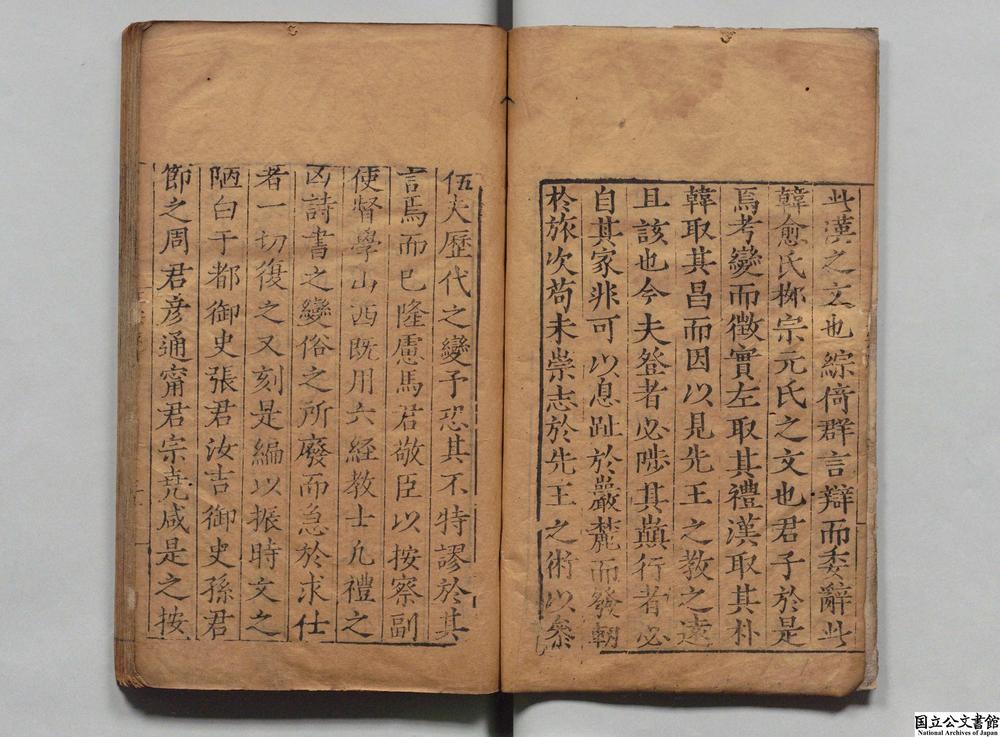 此漢之文也綜倚群言辯而委辭此
韓愈氏栁宗元氏之文也君子於是
焉考變而徵實左取其禮漢取其朴
韓取其昌而因以見先王之教之遠
且該也今夫登者必陟其巔行者必
自其家非可以息趾於巖麓而發軔
於旅次苟未崇志於先王之術以叅
伍夫歷代之變予恐其不特謬於其
言焉而已隆慮馬君敬臣以按察副
使督學山西既用六経教士凡禮之
凶詩書之變俗之所廢而急於求仕
者一切復之又刻是編以振時文之
陋白于都御史張君汝吉御史孫君
節之周君彦通甯君宗堯咸是之按
国立公文書館
National Archives of Japan